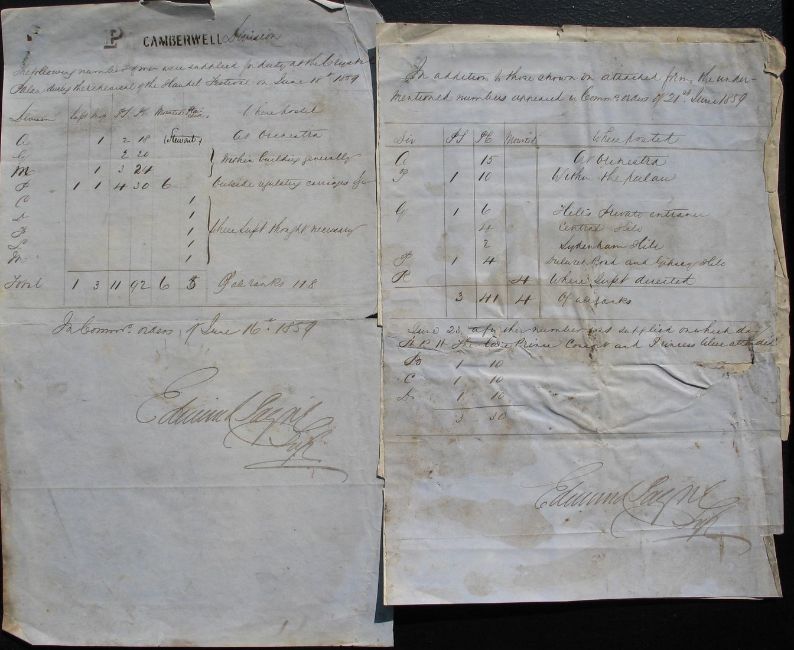 P CAMBERWELL Division
The following numbers of men were supplied for duty at the Crystal
Palace during the rehearsal of the Handel Festival on June 18th 1859
Division Supt Insp PS PC Mounted Plain Where posted
A 1 2 18 At Orchestra
G 2 20
M 1 3 24 Within building generally
P 1 1 4 30 6 Outside regulating carriages &c
C 1
D 1
F 1 Where Supt thought necessary
L 1
M 1
Total 1 3 11 92 6 5 Of all ranks 118
In Commrs orders of June 16th 1859
Edmund Payne
Supt
In addition to those shown on attached form, the under-
mentioned numbers appeared in Commrs orders of 21st June 1859
Div PS PC Mounted Where posted
A 15 At Orchestra
P 1 10 Within the palace
G 1 6 Private entrance
4 Central
2 Sydenham Hill
P 1 4 Road and Gipsey Hill
R 4 Where Supt directed
3 41 4 Of all ranks
June 23 a further number was supplied on which day
H.R.H. The Prince Consort and Princess Alice attended
B 1 10
C 1 10
D 1 10
3 30
Edmund Payne
Supt